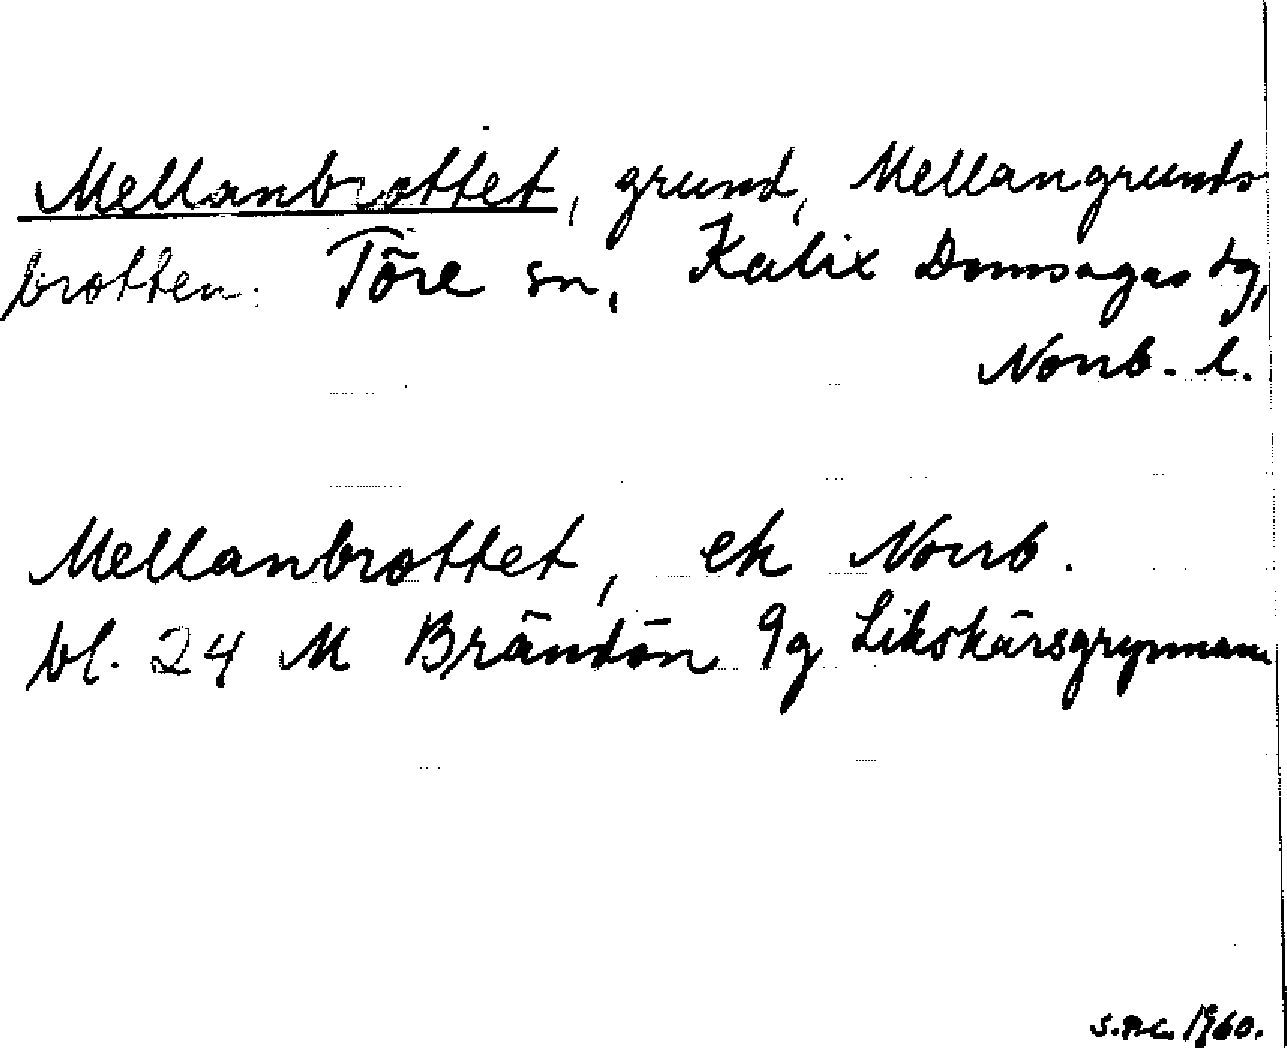 Mellanbrottet, grund, Mellangrunds
brotten. Töre sn, Kalix Domsagas tg,
Norrb. l.
Mellanbrottet, ek Norrb.
bl. 24 M Brändön 9g Likskärsgrynnan
1960.